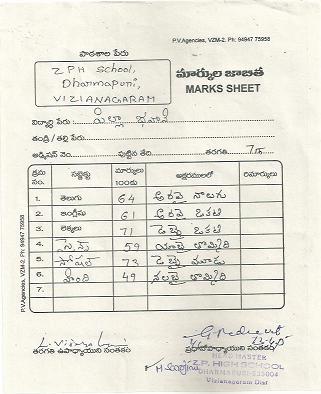 P.V.Agencies, VZM-2. Ph: 94947 75958
పాఠశాల పేరు
Z P H School,
Dharmapuri,
VIZIANAGARAM
మార్కుల జాబితా
MARKS SHEET
విద్యార్థి పేరు
తండ్రి / తల్లి పేరు
అడ్మిషన్ నెం. పుట్టిన తేది. తరగతి 7వ
క్రమ సం. సబ్జెక్టు మార్కులు 100కు అక్షరములలో రిమార్కులు
1. తెలుగు 64 అరవై నాలుగు
2. ఇంగ్లీషు 61 అరవై ఒకటి
3. లెక్కలు 71 డెబ్బై ఒకటి
4. సైన్స్ 59 యాభై తొమ్మిది
5. సోషల్ 73 డెబ్బై మూడు
6. హింది 49 నలభై తొమ్మిది
7.
P.V.Agencies, VZM-2. Ph: 94947 75958
తరగతి ఉపాధ్యాయుని సంతకం ప్రధానోపాధ్యాయుని సంతకం
HEAD MASTER
Z.P. HIGH SCHOOL
DHARMAPURI-535004
Vizianagaram Dist